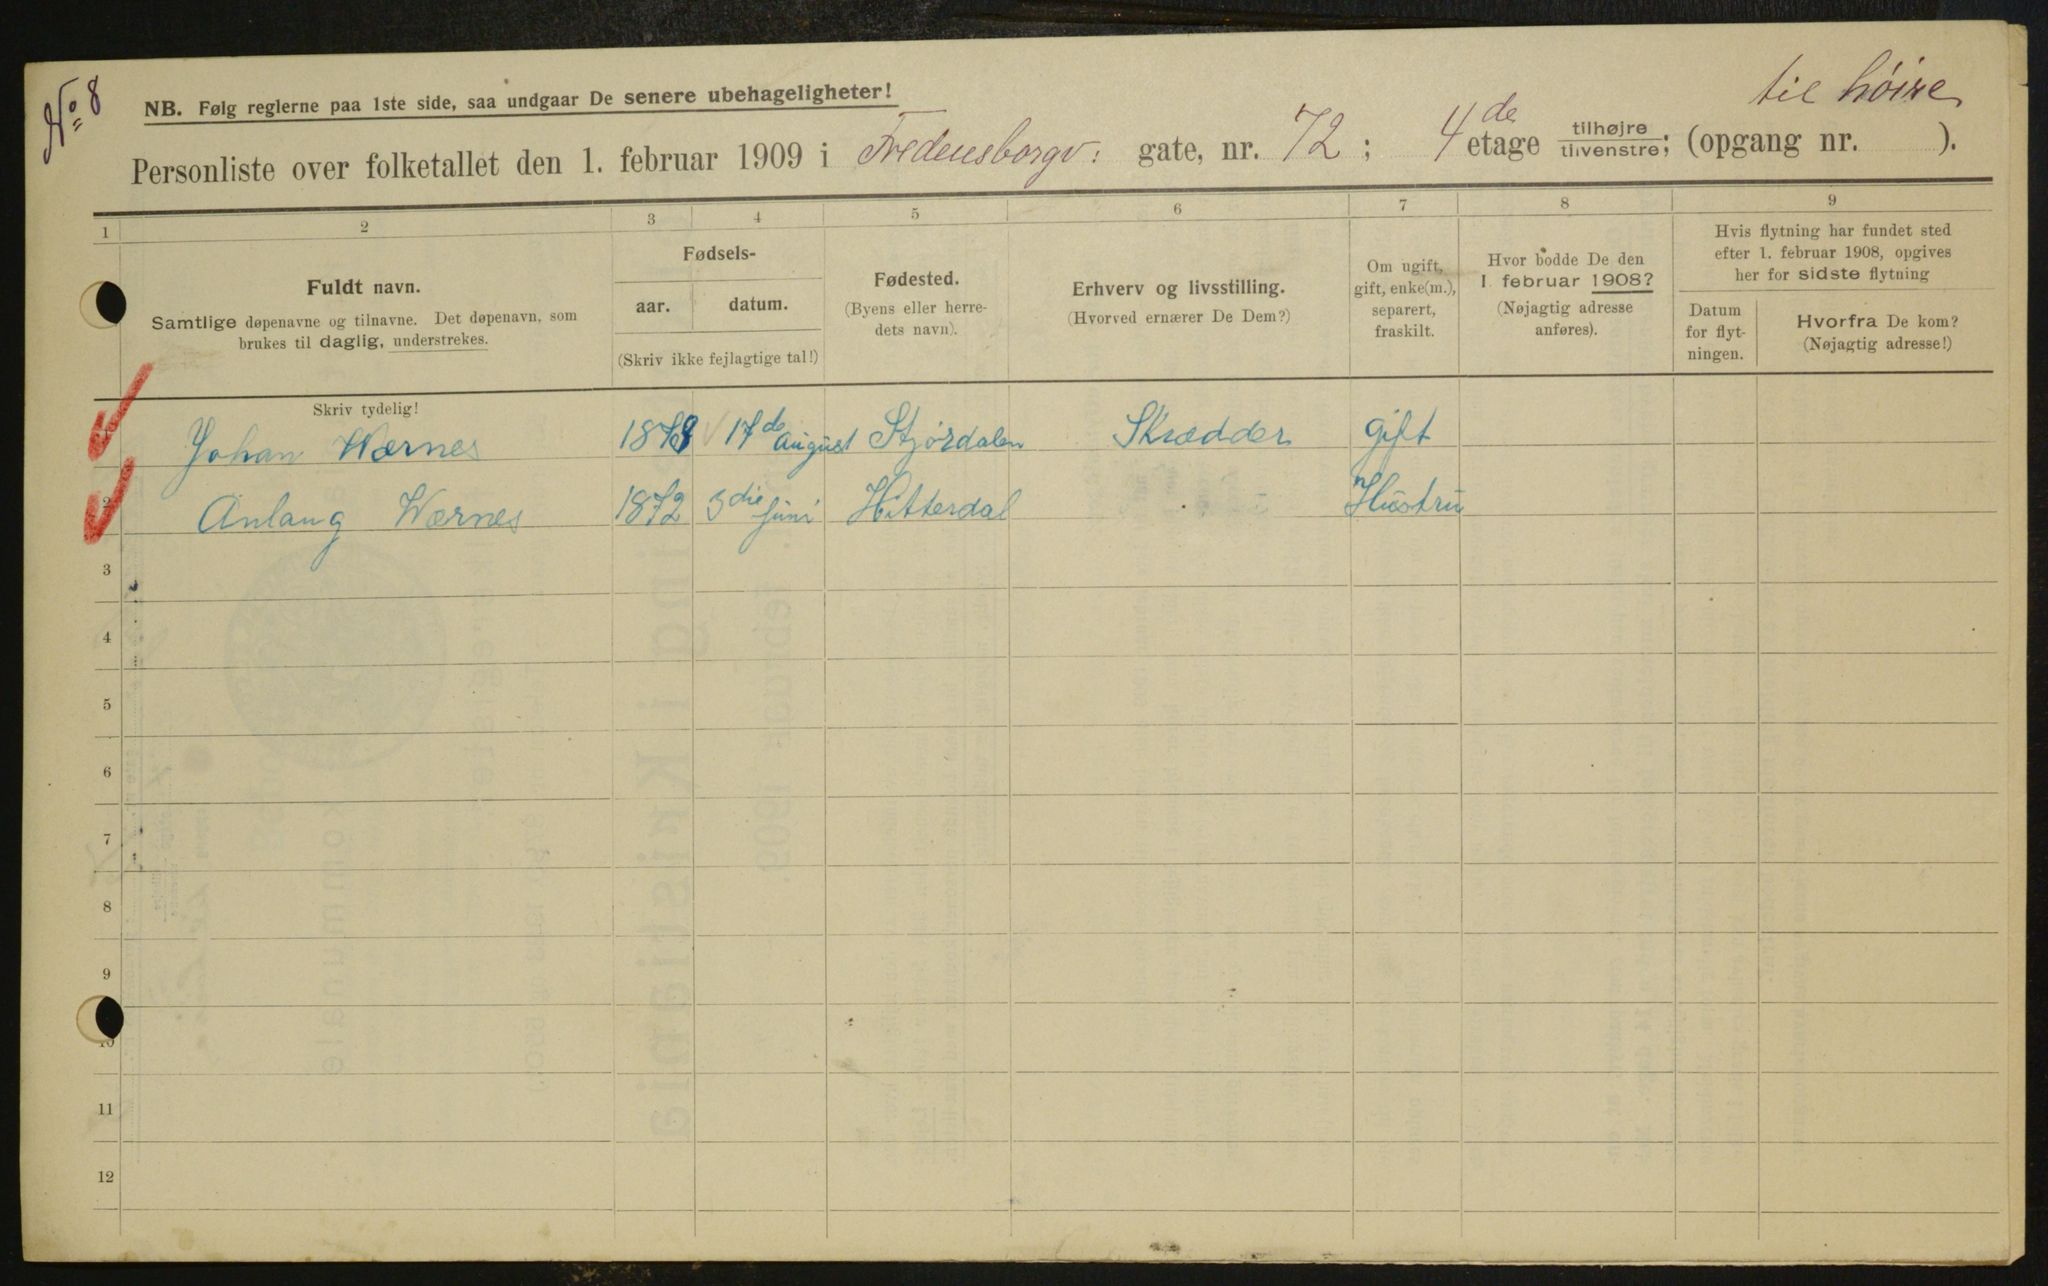 No 8
til høire
NB. Følg reglerne paa 1ste side, saa undgaar De senere ubehageligheter!
Personliste over folketallet den 1. februar 1909 i Fredensborgv: gate, nr. 72; 4de etage tilhøjre tilvenstre; (opgang nr. ).
1 2 3 4 5 6 7 8 9
Fuldt navn.
Samtlige døpenavne og tilnavne. Det døpenavn, som
brukes til daglig, understrekes.
Fødsels-
aar. datum.
(Skriv ikke fejlagtige tal!)
Fødested.
(Byens eller herre-
dets navn).
Erhverv og livsstilling.
(Hvorved ernærer De Dem?)
Om ugift,
gift, enke(m.),
separert,
fraskilt.
Hvor bodde De den
1 februar 1908?
(Nøjagtig adresse
anføres).
Hvis flytning har fundet sted
efter 1. februar 1908, opgives
her for sidste flytning
Datum
for flyt-
ningen.
Hvorfra De kom?
(Nøjagtig adresse!)
Skriv tydelig!
1 Johan Wærnes 17de august Stjørdalen Skrædder gift
2 Anlaug Wærnes 1872 3die juni Hitterdal Hustru
3
4
5
6
7
8
9
10
11
12